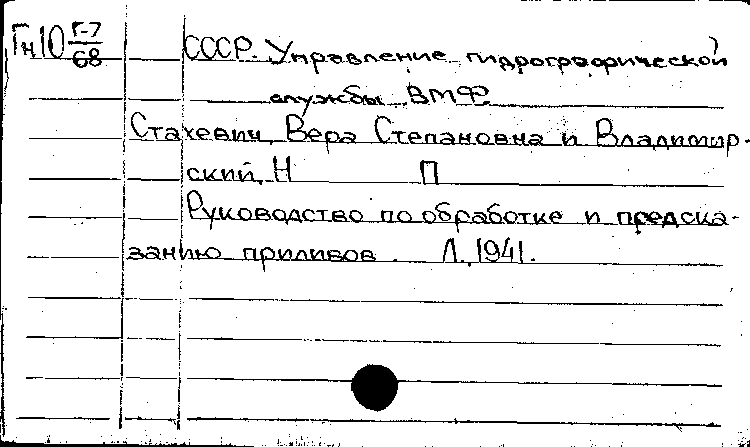 Гн10 Г-7/68 СССР. Управление гидрографической
службы ВМФ.
Стахевич, Вера Степановна и Владимир-
ский, Н П
Руководство по обработке и предска-
занию приливов. Л., 1941.